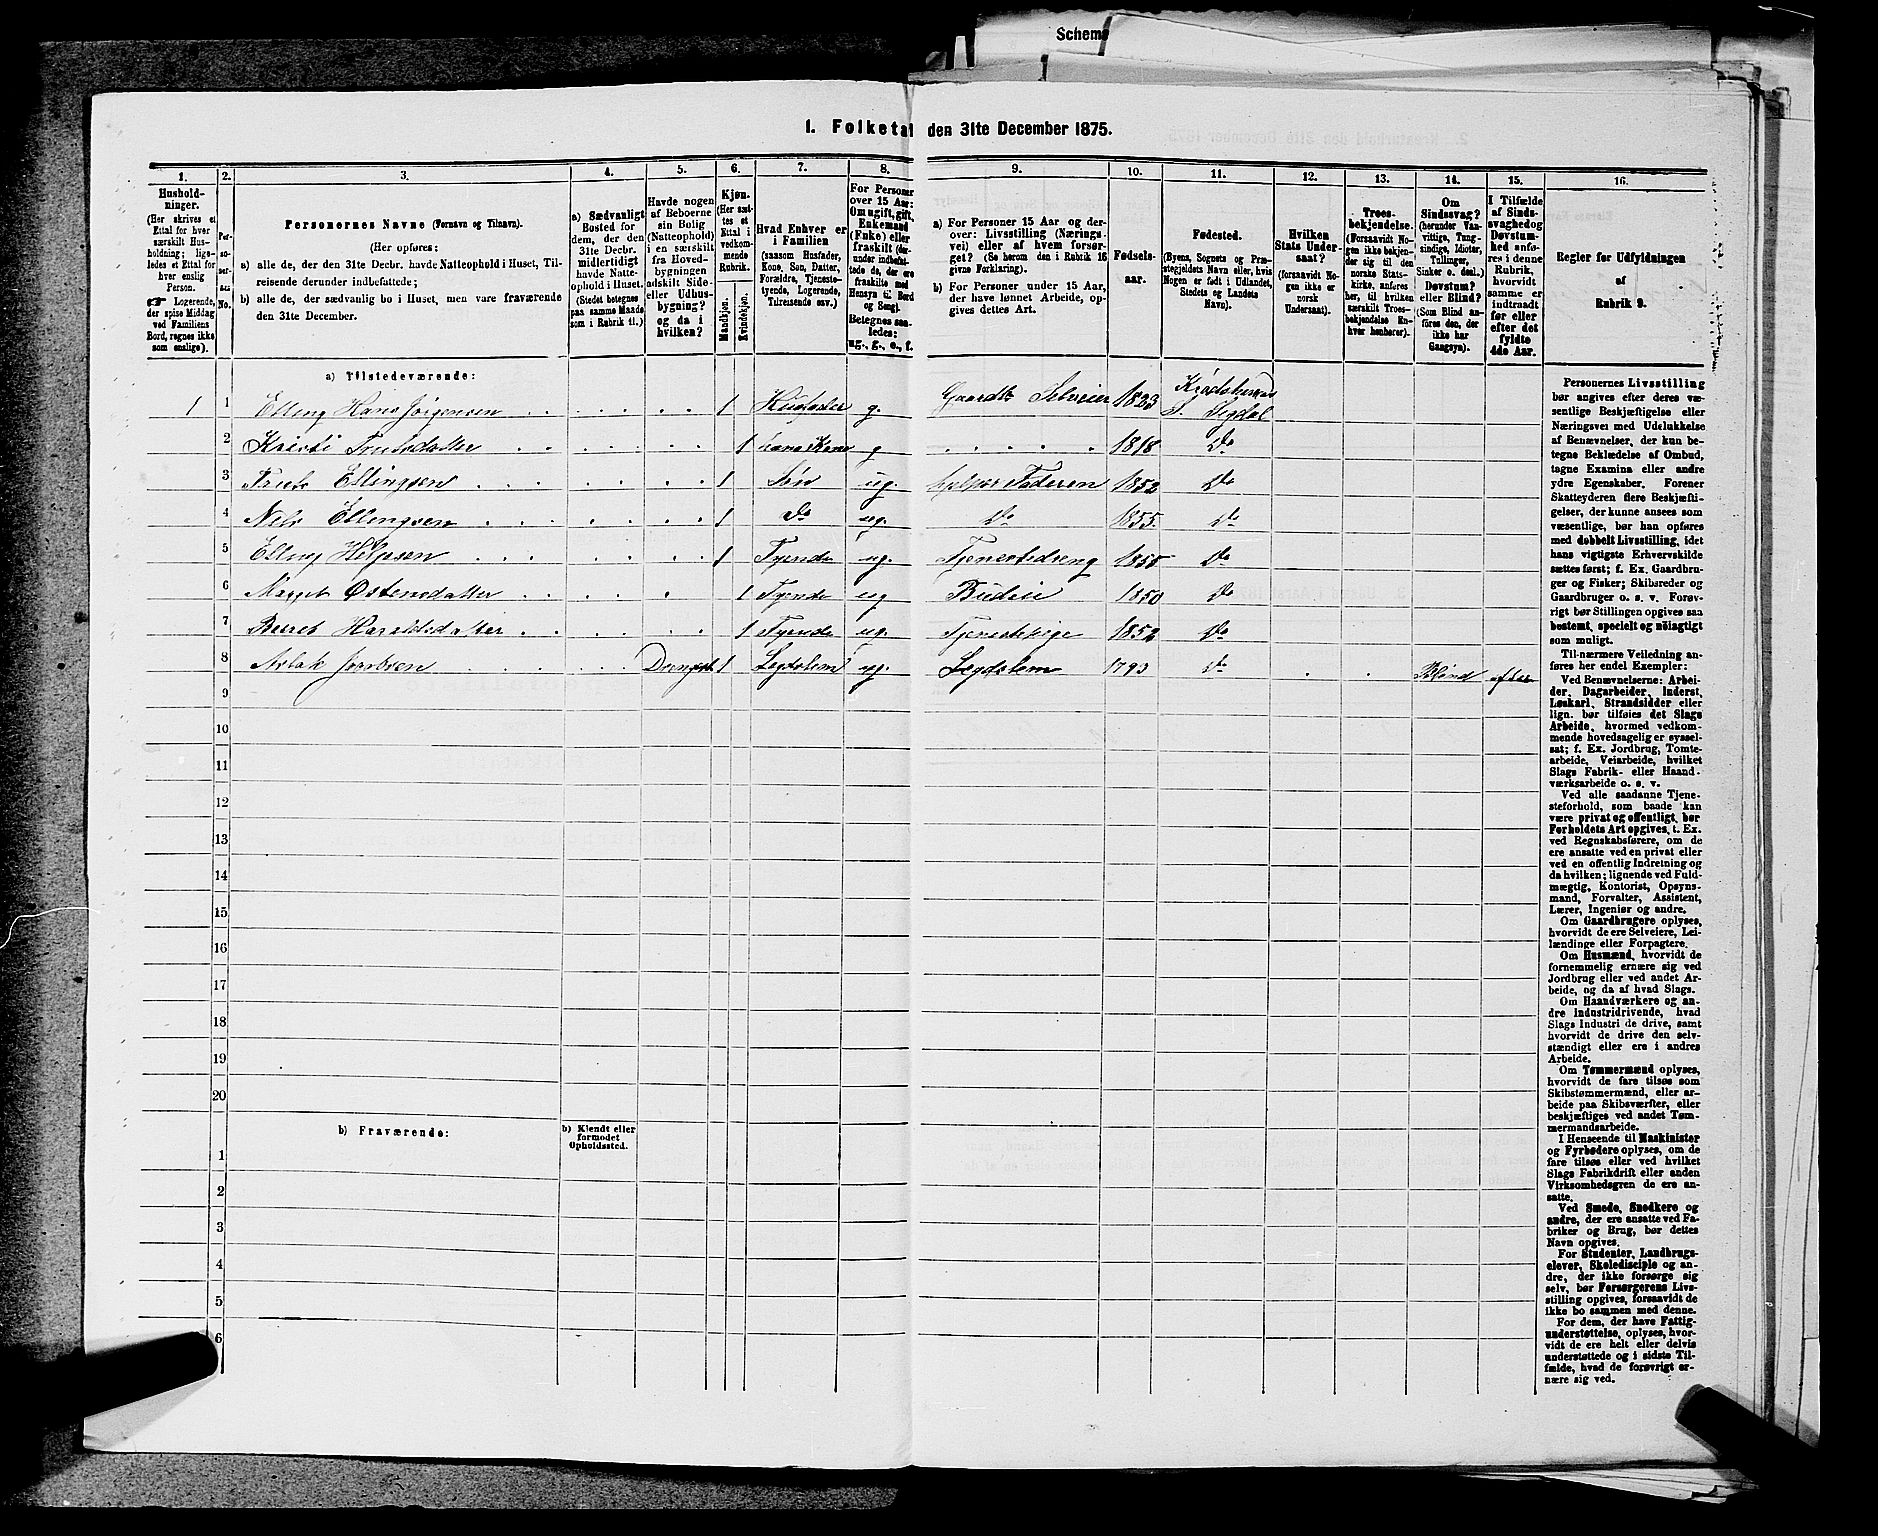 Schema
1. Folketal den 31te December 1875.
1. 2. 3. 4. 5. 6. 7. 8. 9. 10. 11. 12. 13. 14. 15. 16.
Hushold-
ninger.
(Her skrives et
Ettal for hver
særskilt Hus-
holdning; lige-
ledes et Ettal for
hver enslig
Person.
☞ Logerende,
der spise Middag
ved Familiens
Bord, regnes ikke
som enslige).
Personernes Navne (Fornavn og Tilnavn).
(Her opføres:
a) alle de, der den 31te Decbr. havde Natteophold i Huset, Til-
reisende derunder indbefattede;
b) alle de, der sædvanlig bo i Huset, men vare fraværende
den 31te December.
a) Sædvanligt
Bosted for
dem, der den
31te Decbr.
midlertidigt
havde Natte-
ophold i Huset.
(Stedet betegnes
paa samme Maade
som i Rubrik 11.)
Havde nogen
af Beboerne
sin Bolig
(Natteophold)
i en særskilt
fra Hoved-
bygningen
adskilt Side-
eller Udhus-
bygning?
og da i
hvilken?
Kjøn.
(Her sæt-
tes et
Ettal i
vedkom-
mende
Rubrik.
Mandkjøn.
Kvindekjøn.
Hvad Enhver er
i Familien
(saasom Husfader,
Kone, Søn, Datter,
Forældre, Tjeneste-
tyende, Logerende,
Tilreisende osv.)
For Personer
over 15 Aar:
Om ugift, gift,
Enkemand
(Enke) eller
fraskilt (der-
under indbefat-
tede de, der ere
fraskilte med
Hensyn til Bord
og Seng).
Betegnes saa-
ledes:
ug., g., e., f.
a) For Personer 15 Aar og der-
over: Livsstilling (Nærings-
vei) eller af hvem forsør-
get? (Se herom den i Rubrik 16
givne Forklaring).
b) For Personer under 15 Aar,
der have lønnet Arbeide, op-
gives dettes Art.
Fødsels-
aar.
Fødested.
(Byens, Sognets og Præ-
stegjeldets Navn eller, hvis
Nogen er født i Udlandet,
Stedets og Landets
Navn).
Hvilken
Stats Under-
saat?
(forsaavidt No-
gen ikke er
norsk
Undersaat).
Troes-
bekjendelse.
(Forsaavidt No-
gen ikke bekjen-
der sig til den
norske Stats-
kirke, anføres
her, til hvilken
særskilt Troes-
bekjendelse En-
hver henhører).
Om
Sindssvag?
(herunder Van-
vittige, Tung-
sindige, Idioter,
Tullinger,
Sinker o. desl.)
Døvstum?
eller Blind?
(Som Blind an-
føres den, der
ikke har
Gangsyn).
I Tilfælde
af Sinds-
svaghed og
Døvstum-
hed anfø-
res i denne
Rubrik,
hvorvidt
samme er
indtraadt
før eller
efter det
fyldte
4de Aar.
Regler for Udfyldningen
af
Rubrik 9.
a) Tilstedeværende:
1 1 Elling Hans Jørgensen 1 Husfader g. Gaardbr. Selveier 1823 Krødsherred S. Sigdal
2 Kristi Truls datter 1 hans Kone g 1818 Do
3 Truls Ellingsen 1 Søn ug. hjelper Faderen 1852 Do
4 Nels Ellingsen 1 Do ug. Do 1855. Do
5 Elling Helgesen 1 Tyende ug. Tjenestedreng 1858 Do
6 Margit Østensdatter 1 Tyende ug Budeie 1850 Do
7 Berret Haraldsdatter 1 Tyende ug. Tjenestepige 1852 Do
8 Aslak Jacobsen 1 Legdslem ug. Legdslem 1793 Do Blind efter
9
10
11
12
13
14
15
16
17
18
19
20
b) Fraværende:
b) Kjendt eller
formodet
Opholdssted.
1
2
3
4
5
6
Personernes Livsstilling
bør angives efter deres væ-
sentlige Beskjæftigelse eller
Næringsvei med Udelukkelse
af Benævnelser, der kun be-
tegne Beklædelse af Ombud,
tagne Examina eller andre
ydre Egenskaber. Forener
Skatteyderen flere Beskjæfti-
gelser, der kunne ansees som
væsentlige, bør han opføres
med dobbelt Livsstilling, idet
hans vigtigste Erhvervskilde
sættes først; f. Ex. Gaardbru-
ger og Fisker; Skibsreder og
Gaardbruger o. s. v. Forøv-
rigt bør Stillingen opgives saa
bestemt, specielt og nøiagtigt
som muligt.
Til nærmere Veiledning an-
føres her endel Exempler:
Ved Benævnelserne: Arbei-
der, Dagarbeider, Inderst,
Løskarl, Strandsidder eller
lign. bør tilføies det Slags
Arbeide, hvormed vedkom-
mende hovedsagelig er syssel-
sat; f. Ex. Jordbrug, Tomte-
arbeide, Veiarbeide, hvilket
Slags Fabrik- eller Haand-
værksarbeide o. s. v.
Ved alle saadanne Tjene-
steforhold, som baade kan
være privat og offentligt, bør
Forholdets Art opgives, t. Ex.
ved Regnskabsførere, om de
ere ansatte ved en privat eller
ved en offentlig Indretning og
da hvilken; lignende ved Fuld-
mægtig, Kontorist, Opsyns-
mand, Forvalter, Assistent,
Lærer, Ingeniør og andre.
Om Gaardbrugere oplyses,
hvorvidt de ere Selveiere, Lei-
lændinge eller Forpagtere.
Om Husmænd, hvorvidt de
fornemmelig ernære sig ved
Jordbrug eller ved andet Ar-
beide, og da af hvad Slags.
Om Haandværkere og an-
dre Industridrivende, hvad
Slags Industri de drive, samt
hvorvidt de drive den selv-
stændigt eller ere i andres
Arbeide.
Om Tømmermænd oplyses,
hvorvidt de fare tilsøs som
Skibstømmermænd, eller ar-
beide paa Skibsværfter, eller
beskjæftiges ved andet Tøm-
mermandsarbeide.
I Henseende til Maskinister
og Fyrbødere oplyses, om de
fare tilsøs eller ved hvilket
Slags Fabrikdrift eller anden
Virksomhedsgren de ere an-
satte.
Ved Smede, Snedkere og
andre, der ere ansatte ved Fa-
briker og Brug, bør dettes
Navn opgives.
For Studenter, Landbrugs-
elever, Skoledisciple og an-
dre, der ikke forsørge sig
selv, bør Forsørgerens Livs-
stilling opgives, forsaavidt de
ikke bo sammen med denne.
For dem, der have Fattig-
understøttelse, oplyses, hvor-
vidt de ere helt eller delvis
understøttede og i sidste Til-
fælde, hvad de forøvrigt er-
nære sig ved.